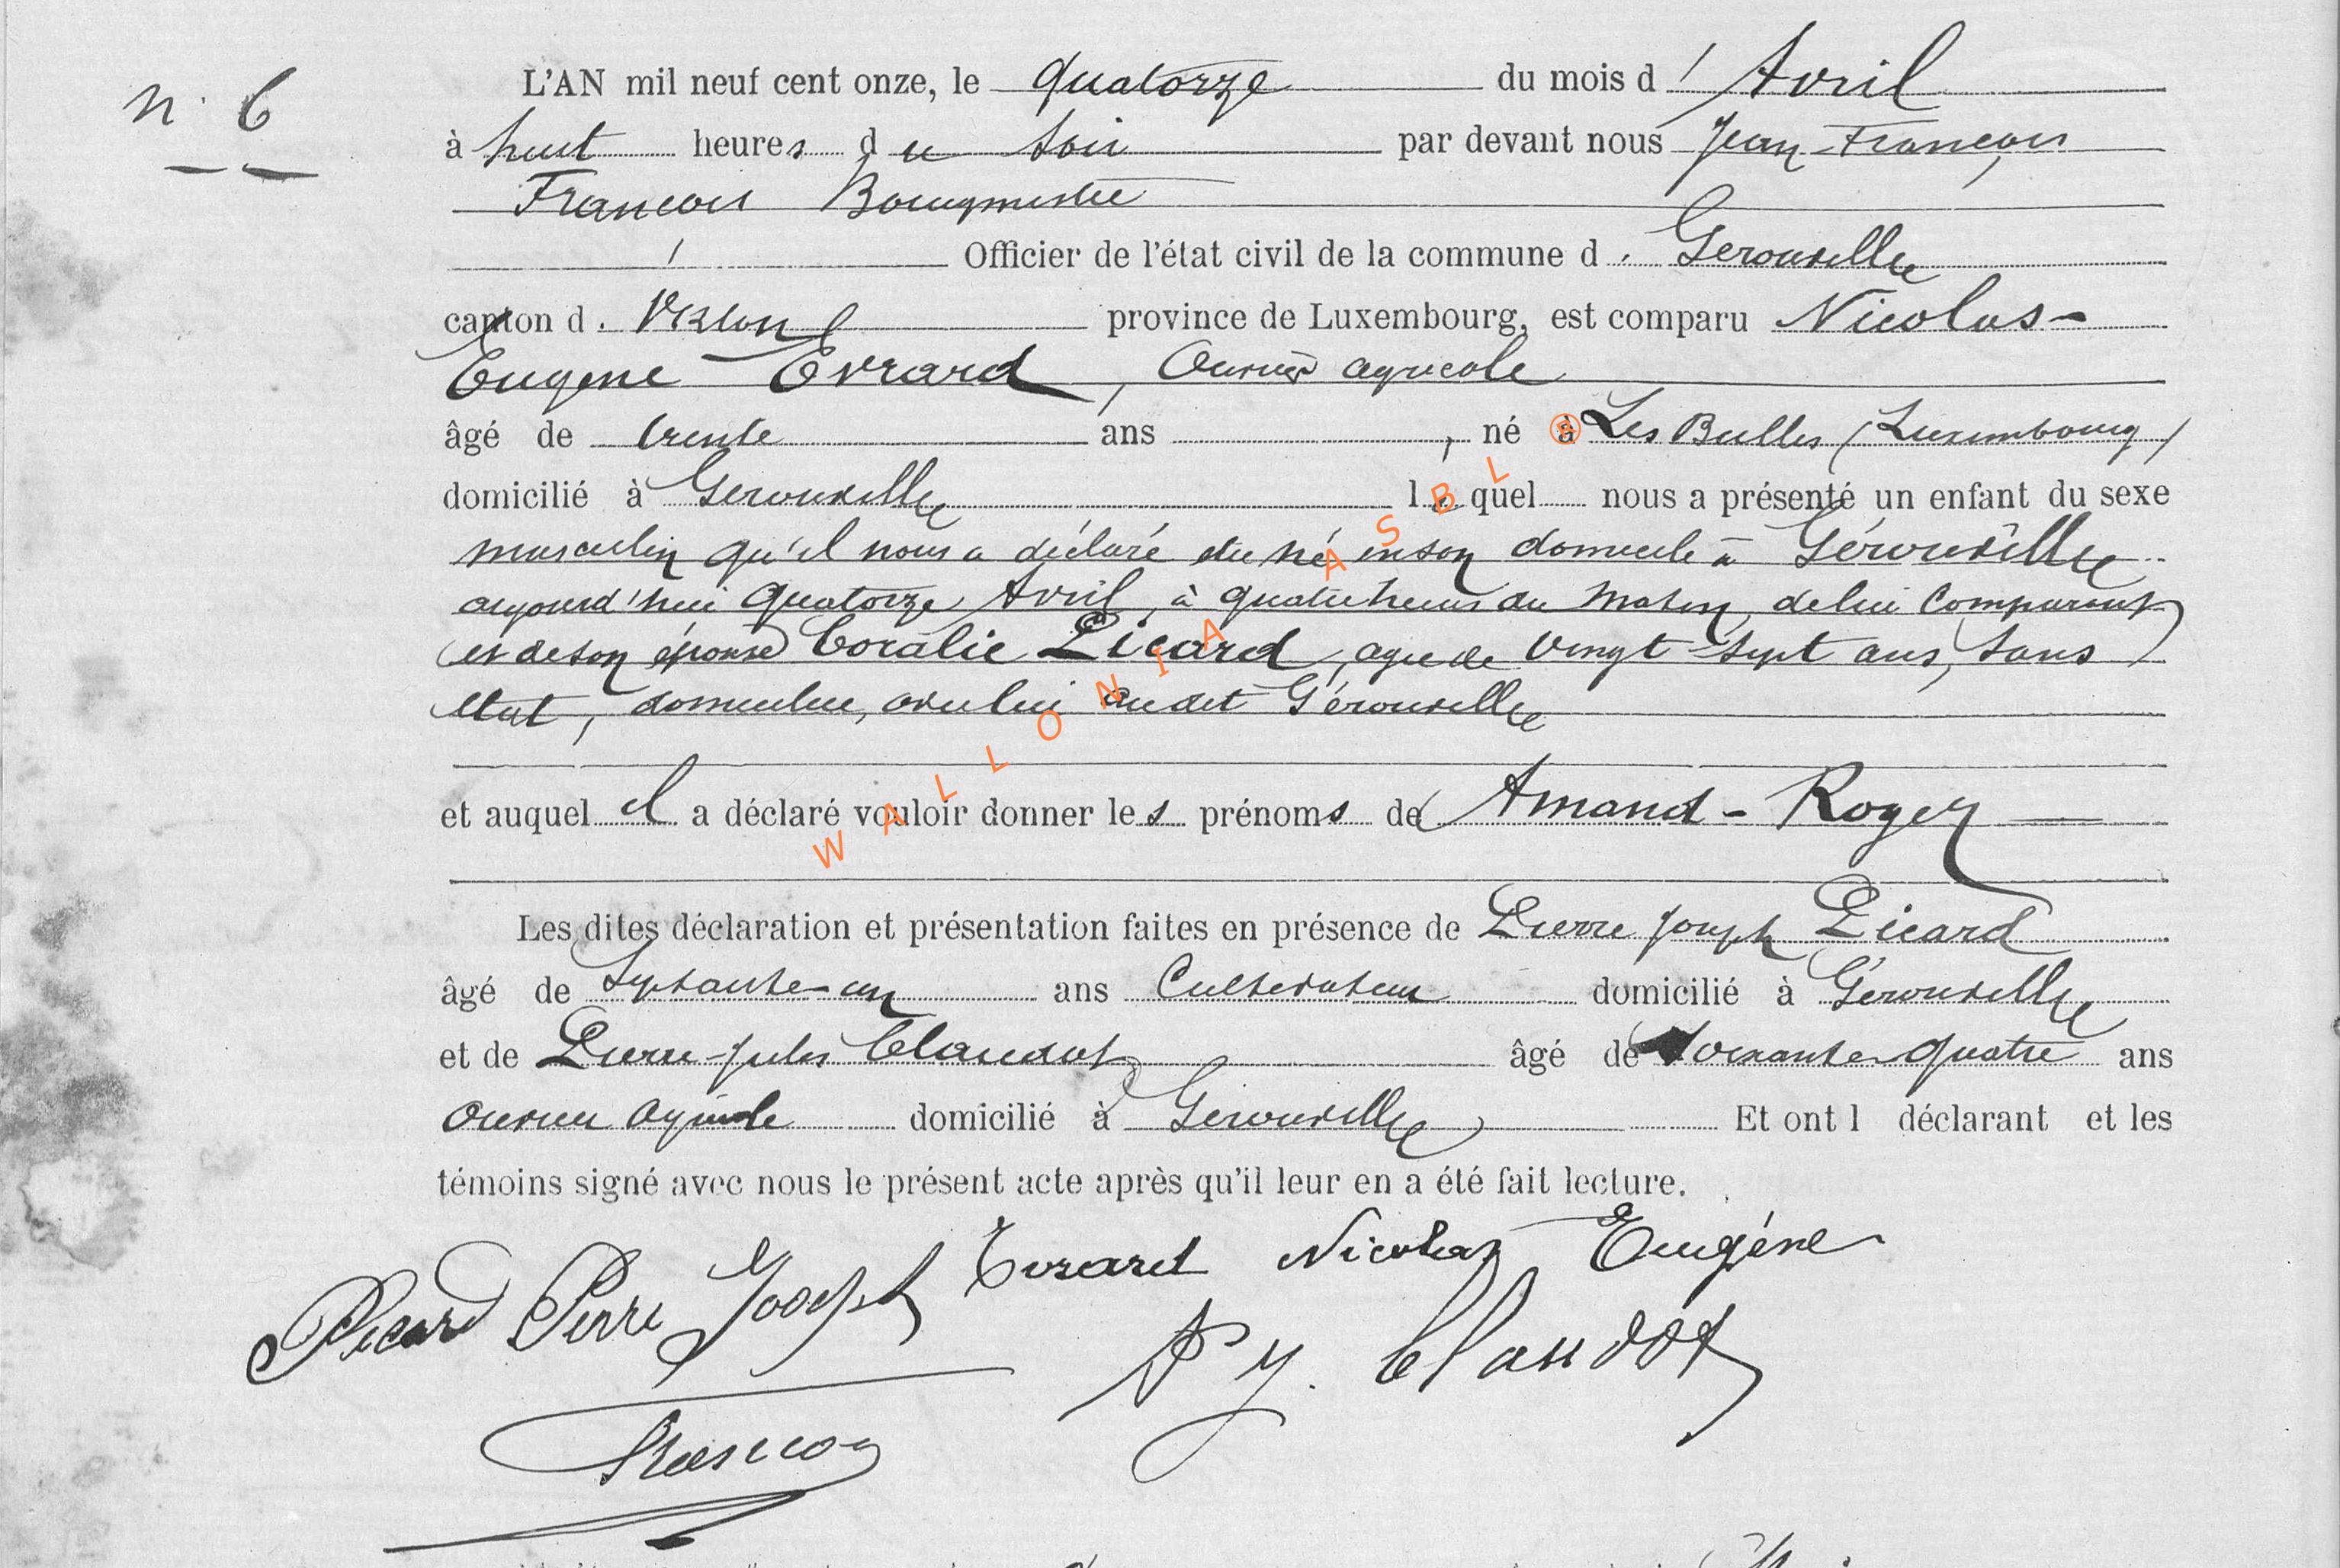 n. 6
L'AN mil neuf cent onze, le quatorze du mois d' Avril
à huit heures du soir par devant nous Jean François
François Bourgmestre
Officier de l'état civil de la commune d. Gerouville
canton d. Virton province de Luxembourg, est comparu Nicolas-
Eugène Evrard, Ouvrier agricole
âgé de trente ans, né à Les Bulles (Luxembourg)
domicilié à Gerouville lequel nous a présenté un enfant du sexe
masculin qu'il nous a déclaré être né en son domicile à Gérouville
aujourd'hui quatorze Avril, à quatre heures du matin, de lui Comparant
et de son épouse Coralie Picard, agée de vingt-sept ans, sans
état, domiciliée, avec lui audit Gérouville
et auquel il a déclaré vouloir donner les prénoms de Amand-Roger
Les dites déclaration et présentation faites en présence de Pierre Joseph Picard
âgé de Septante-un ans Cultivateur domicilié à Gérouville
et de Pierre-Jules Claudot âgé de soixante-quatre ans
ouvrier agricole domicilié à Gérouville Et ont l déclarant et les
témoins signé avec nous le présent acte après qu'il leur en a été fait lecture.
Picard Pierre Joseph Evrard Nicolas Eugène
P J. Claudot
WALLONIA ASBL ®